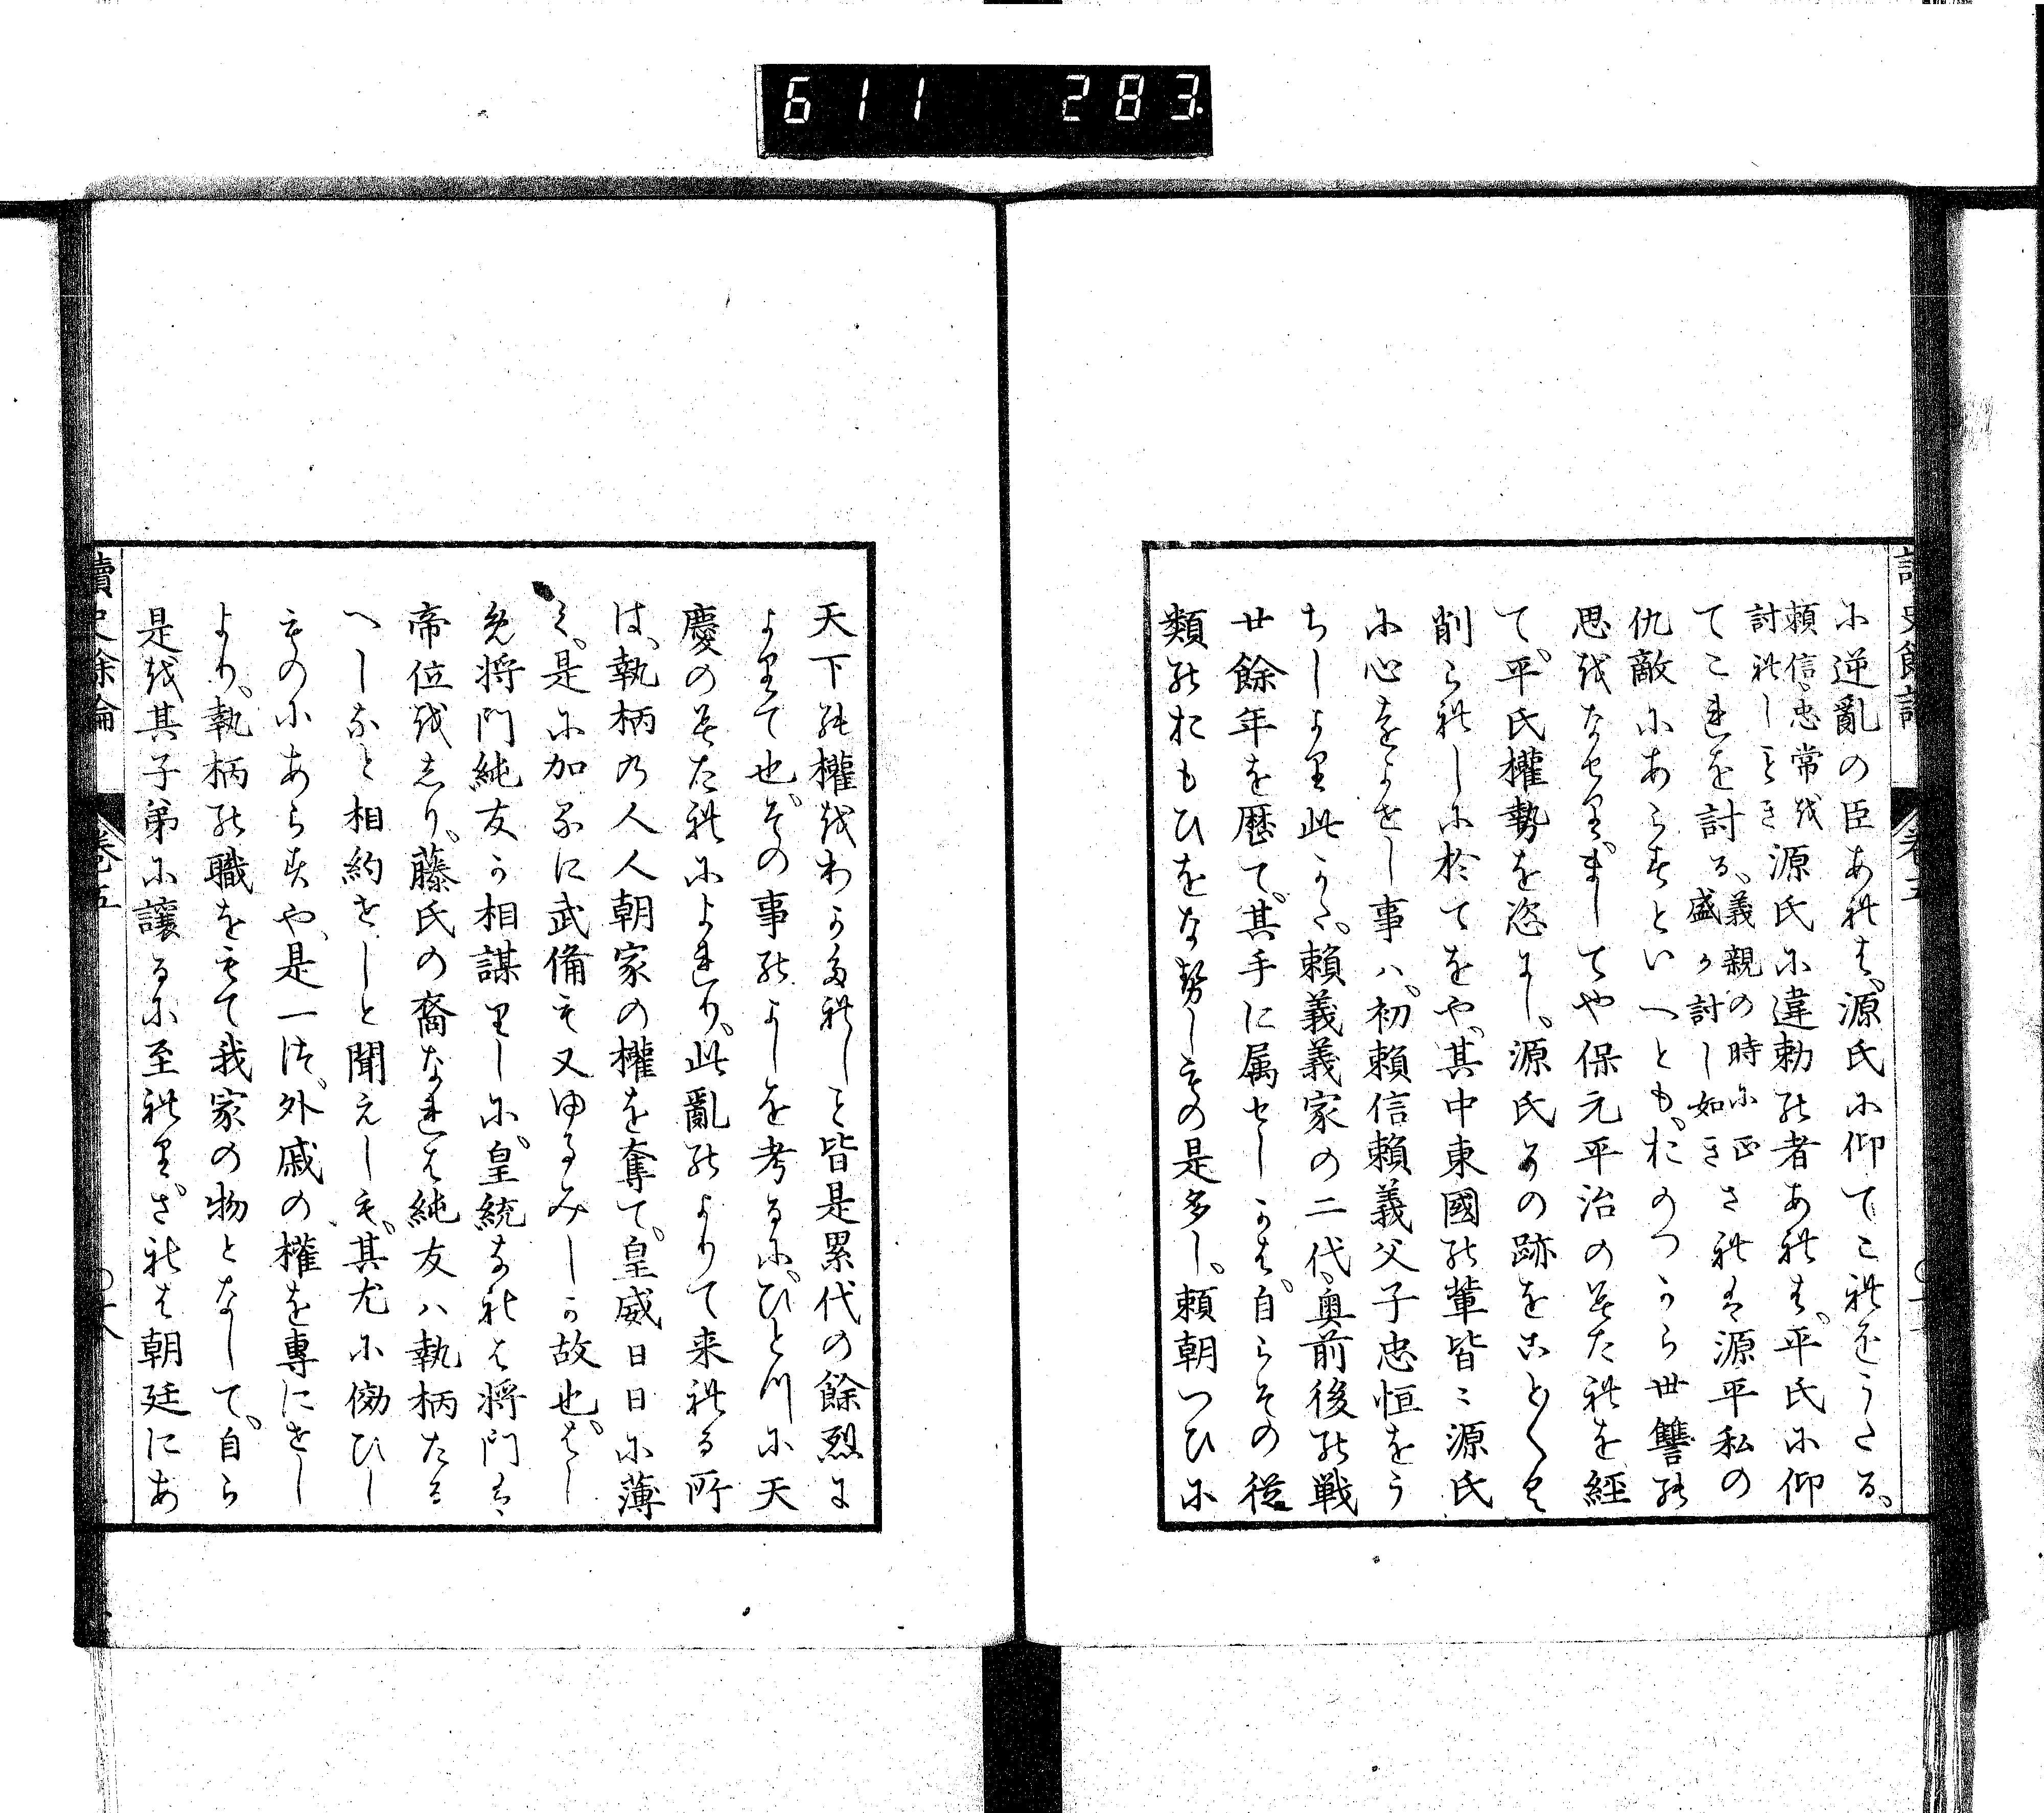 611 283
讀史餘論 卷五
に逆亂の臣あれは、源氏に仰てこれをうたる、
頼信、忠常を討れしことき
源氏に違勅の者あれは、平氏に仰
てこれを討る、
義親の時に正盛か討し如き
されは源平私の
仇敵にあらすといへとも、おのつから世讐の
思をなせり、ましてや保元平治のみたれを經
て、平氏權勢を恣にし、源氏その跡をことく
削られしに於てをや、其中東國の輩皆〻源氏
に心をよせし事ハ、初頼信頼義父子忠恒をう
ちしより此かた、頼義義家の二代、奥前後の戦
廿餘年を歴て、其手に属せしかは、自らその從
類のおもひをな勢しもの是多し、頼朝つひに
天下の權をわかたれしこと皆是累代の餘烈に
よりて也、その事のよしを考るに、ひとつに天
慶のみたれによれり、此亂のよりて来れる所
は、執柄の人人朝家の權を奪て、皇威日日に薄
く、是に加るに武備も又ゆるみしか故也、はし
め将門純友か相謀りしに、皇統なれは将門は
帝位をしり、藤氏の裔なれは純友ハ執柄たる
へしなと相約せしと聞えしも、其尤に傚ひし
ものにあらすや、是一つ、外戚の權を專にせし
より、執柄の職をもて我家の物となして、自ら
是を其子弟に讓るに至れり、されは朝廷にあ
讀史餘論 卷五